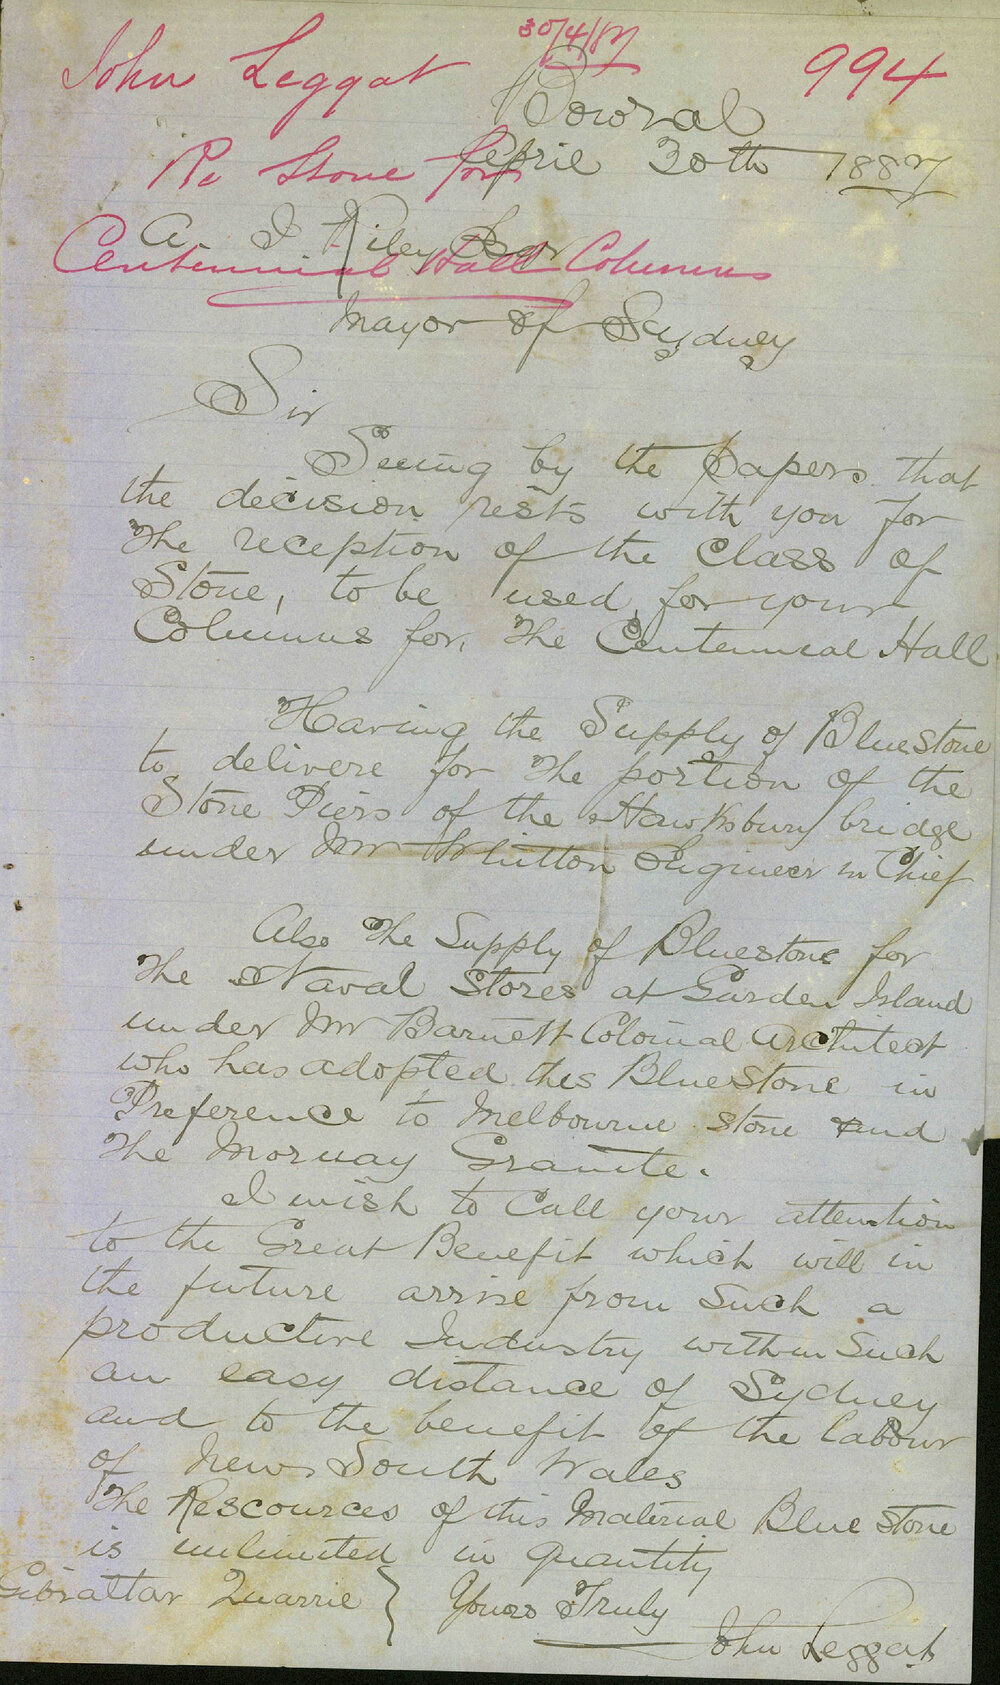 30/4/87
John Leggat
994
Bowral
Re Stone for
April 30th 1887
A. J Riley Esqr
Centennial Hall Columns
Mayor of Sydney
Sir
Seeing by the papers that
the decision rests with you for
the reception of the class of
Stone, to be used for your
Columns for, the Centennial Hall
Having the Supply of Bluestone
to delivere for the portion of the
Stone Piers of the Hawksbury bridge
under Mr Whitton Engineer in Chief
Also the Supply of Bluestone for
the Naval Stores at Garden Island
under Mr Barnett Colonial Architect
who has adopted this BlueStone in
Preference to Melbourne stone and
the Moruay Granite.
I wish to Call your attention
to the Great Benefit which will in
the future arrise from Such a
productive Industry within Such
an easy distance of Sydney
and to the benefit of the labour
of New South Wales
The Rescources of this Material Blue stone
is unlimited in quantity
Gibraltar Quarrie } Yours Truly
John Leggat